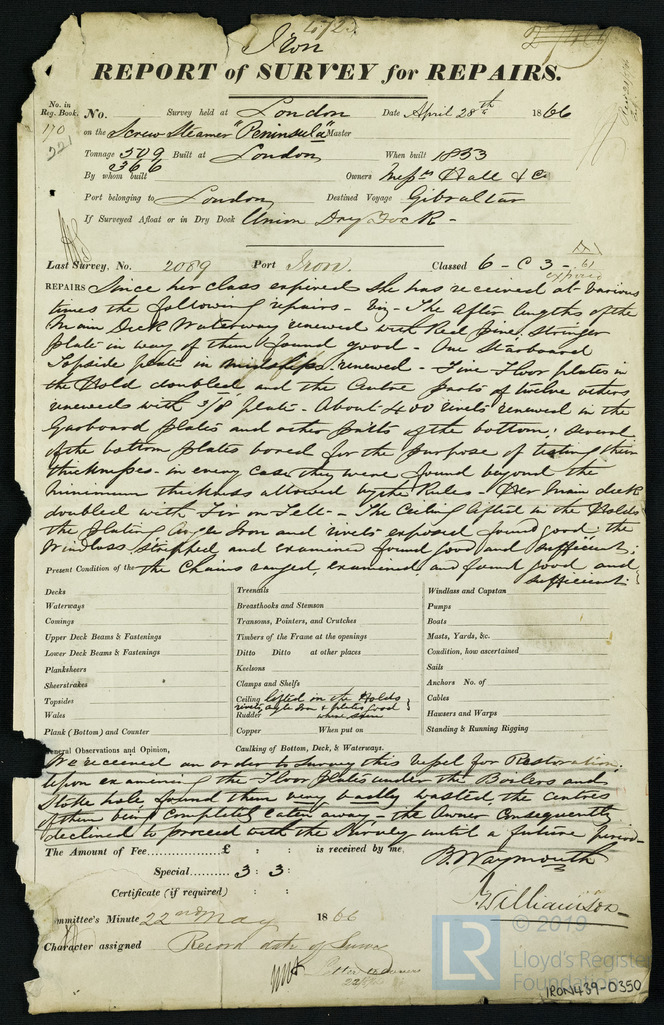 Iron
REPORT of SURVEY for REPAIRS.
No. in
Reg. Book.
170
221
No. Survey held at London Date April 28th 1866
on the Screw Steamer "Peninsula" Master
Tonnage 509 Built at London When built 1853
366
By whom built Owners Messrs Hall & Co
Port belonging to London Destined Voyage Gibraltar
If Surveyed Afloat or in Dry Dock Union Dry Dock -
Last Survey, No. 2089 Port Iron. Classed 6 - C 3 - 61
expired
REPAIRS Since her class expired she has received at various
times the following repairs - viz - The after lengths of the
Main Deck Waterway renewed with Red pine, stringer
plate in way of them found good - One Starboard
Topside plate in midships renewed - Five Floor plates in
the Hold doubled, and the Centre parts of twelve others
renewed with 3/8 plate - About 400 rivets renewed in the
Garboard plates and other parts of the bottom: several
of the bottom plates bored for the purpose of testing their
thickness - in every case they were found beyond the
minimum thickness allowed by the Rules - Her main deck
doubled with Fir on Felt - The Ceiling lifted in the Holds
the plating Angle Iron and rivets exposed found good the
Windlass stripped and examined found good and sufficient;
Present Condition of the the Chains ranged, examined, and found good and
sufficient:
Decks
Waterways
Comings
Upper Deck Beams & Fastenings
Lower Deck Beams & Fastenings
Planksheers
Sheerstrakes
Topsides
Wales
Plank (Bottom) and Counter
Treenails
Breasthooks and Stemson
Transoms, Pointers, and Crutches
Timbers of the Frame at the openings
Ditto Ditto at other places
Keelsons
Clamps and Shelfs
Ceiling lifted in the Holds
rivets angle iron & plates good
Rudder where seen
Copper When put on
Caulking of Bottom, Deck, & Waterways.
Windlass and Capstan
Pumps
Boats
Masts, Yards, &c.
Condition, how ascertained
Sails
Anchors No. of
Cables
Hawsers and Warps
Standing & Running Rigging
General Observations and Opinion,
We received an order to Survey this vessel for Restoration;
upon examining the Floor plates under the Boilers and
Stoke hole, found them very badly wasted, the centres
of them being completely eaten away - the Owner consequently
declined to proceed with the Survey until a future period -
The Amount of Fee £ : : is received by me,
B. Waymouth
Special 3 : 3 :
J. Williamson
Certificate (if required) : :
Committee's Minute 22nd May 1866
Character assigned Record date of Survey
© 2019
LR
Lloyd's Register
Foundation
IRON439-0350